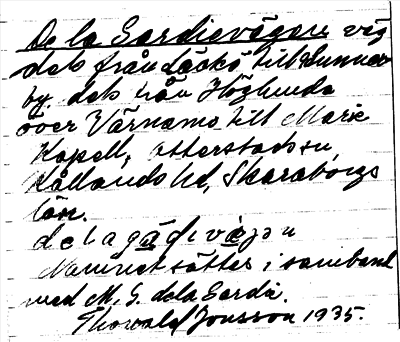 De la Gardievägen väg
dels från Läckö till Sunners-
by. dels från Höglunda
över Värnamo till Marie
Kapell, Otterstads sn,
Kållands hd, Skaraborgs
län.
de la gadivägen
Namnet sättes i samband
med M. G. dela Gardie.
Thorvald Jonsson 1935.